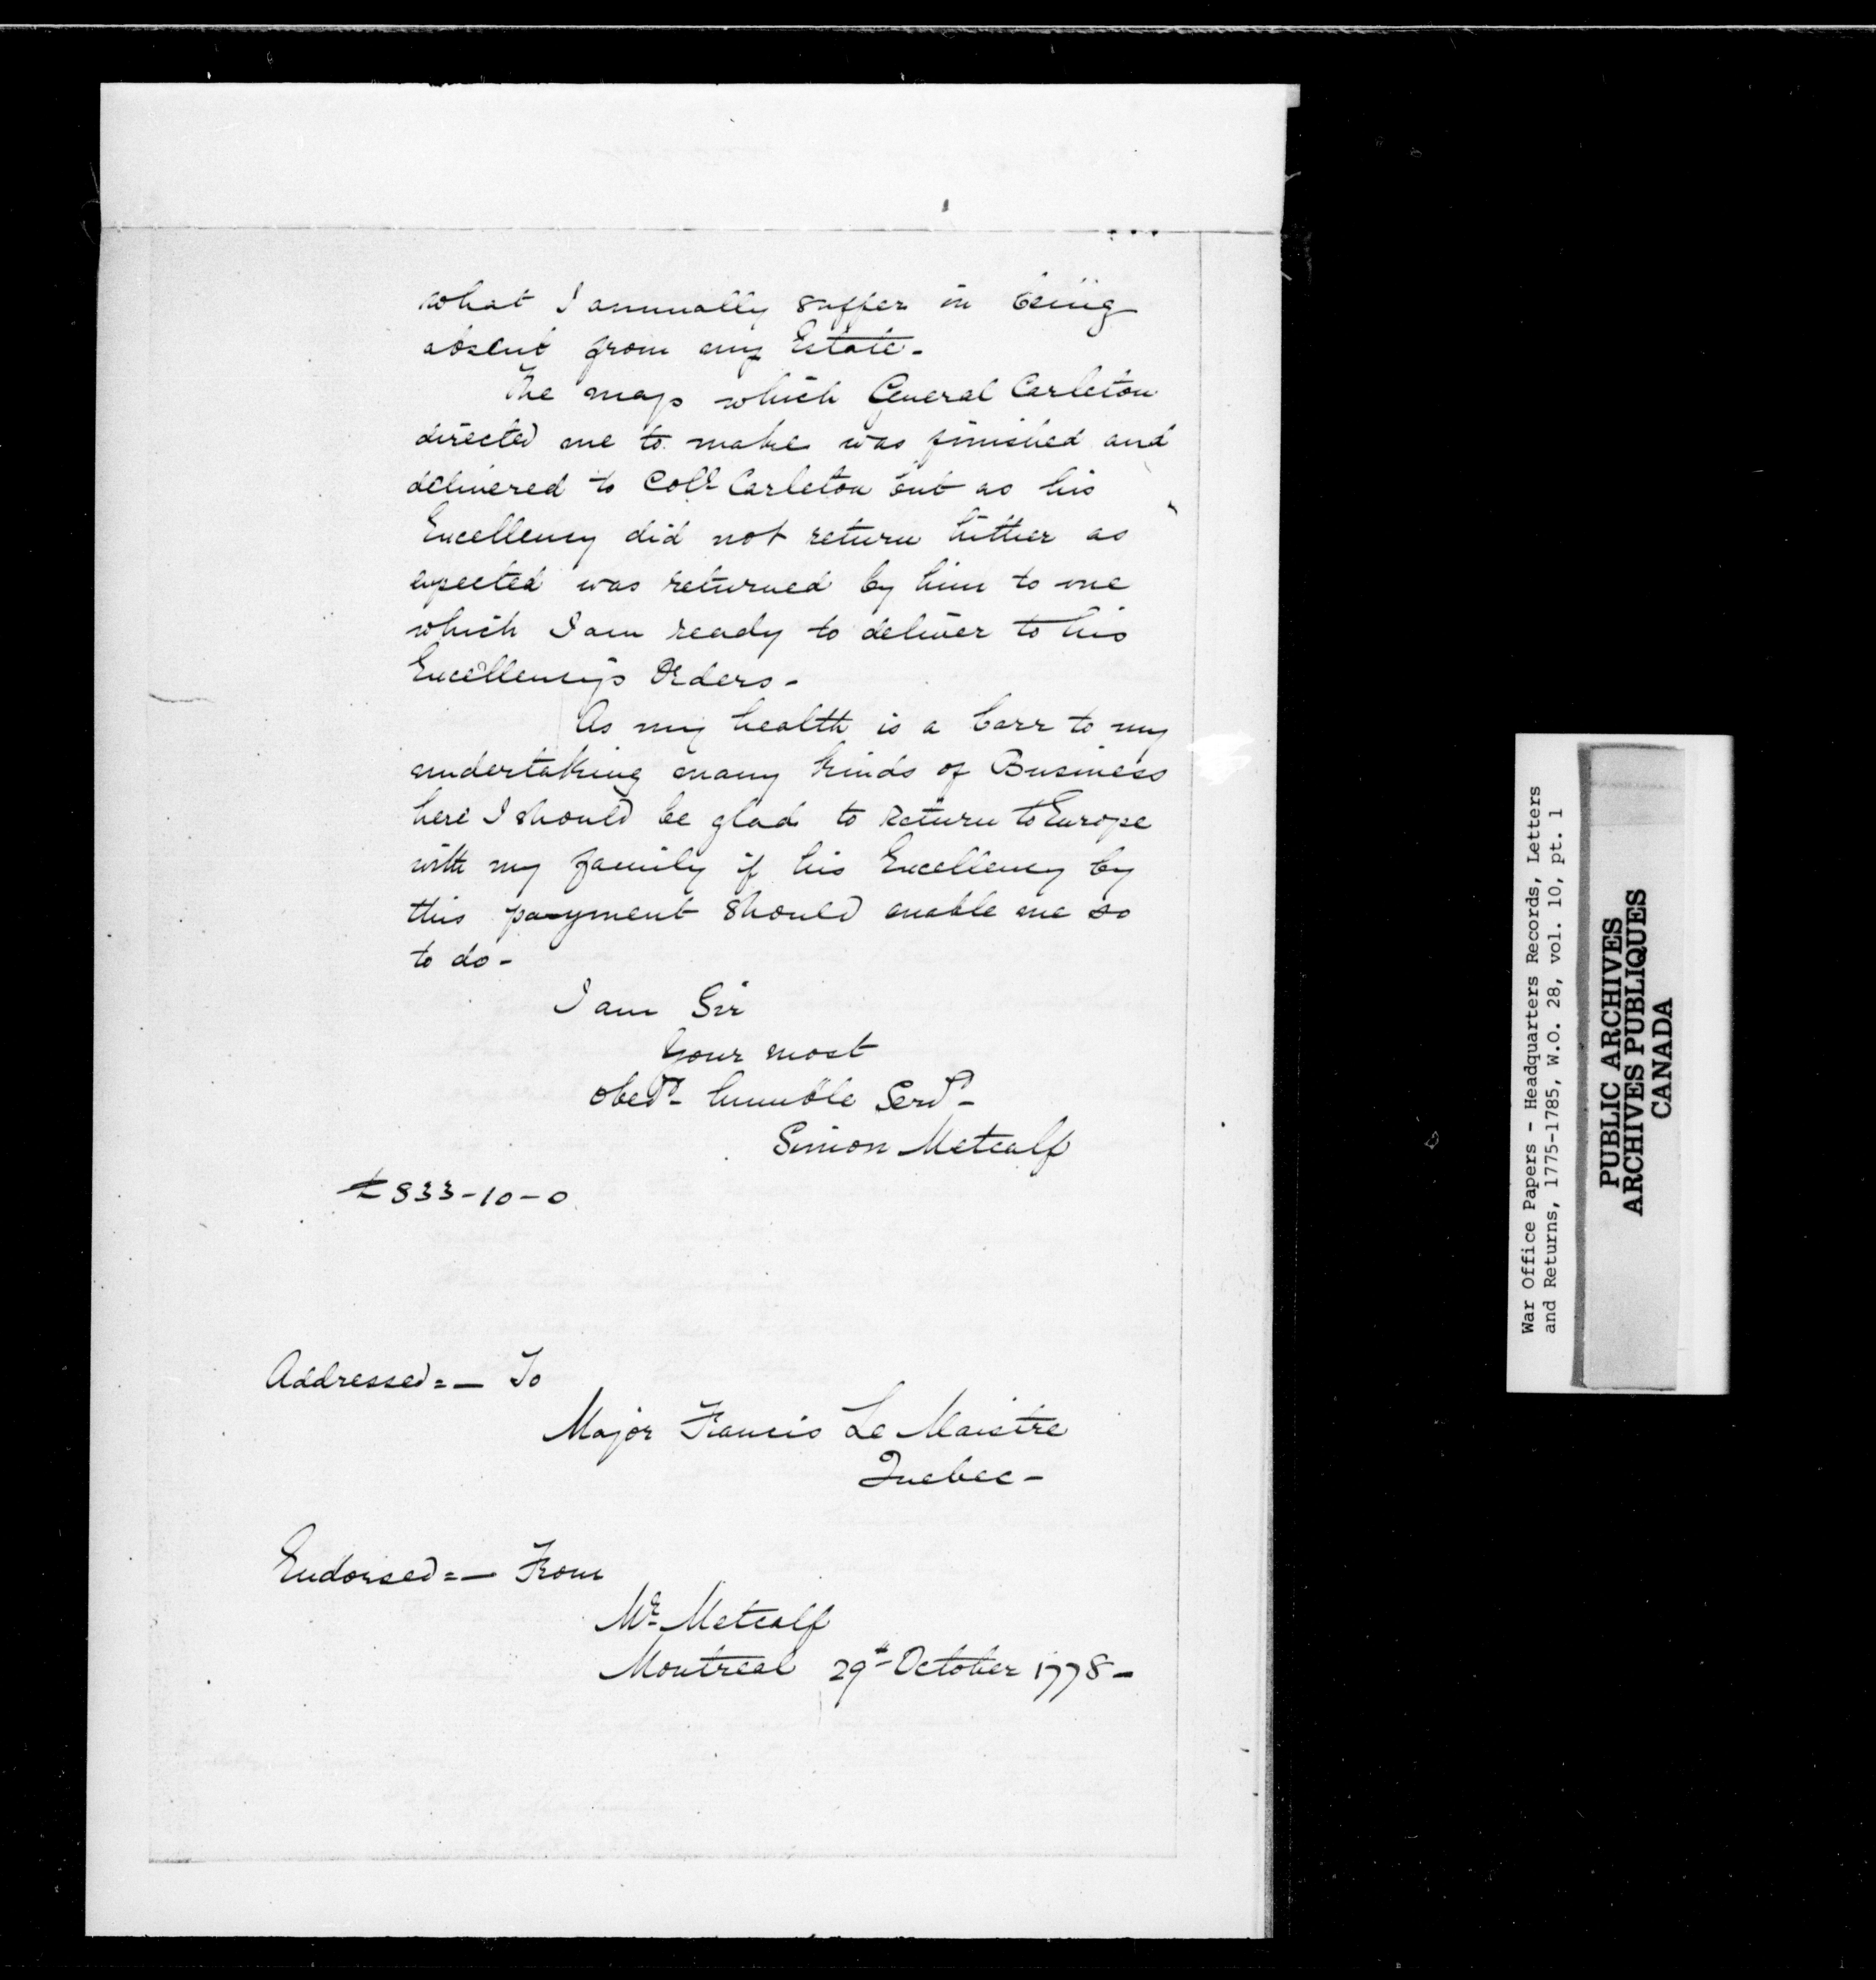 what I annually suffer in being
absent from my Estate -
The map which General Carleton
directed me to make was finished and
delivered to Coll Carleton but as his
Excellency did not return hither as
expected was returned by him to me
which I am ready to deliver to his
Excellency's Orders -
As my health is a barr to my
undertaking many kinds of Business
here I should be glad to return to Europe
with my family if his Excellency by
this payment should enable me so
to do -
I am Sir
Your most
obedt humble Servt -
Simon Metcalf
£833-10-0
Addressed = — To
Major Francis Le Maistre
Quebec -
Endorsed = — From
Mr Metcalf
Montreal 29th October 1778 -
War Office Papers - Headquarters Records, Letters
and Returns, 1775-1785, W.O. 28, vol. 10, pt. 1
PUBLIC ARCHIVES
ARCHIVES PUBLIQUES
CANADA